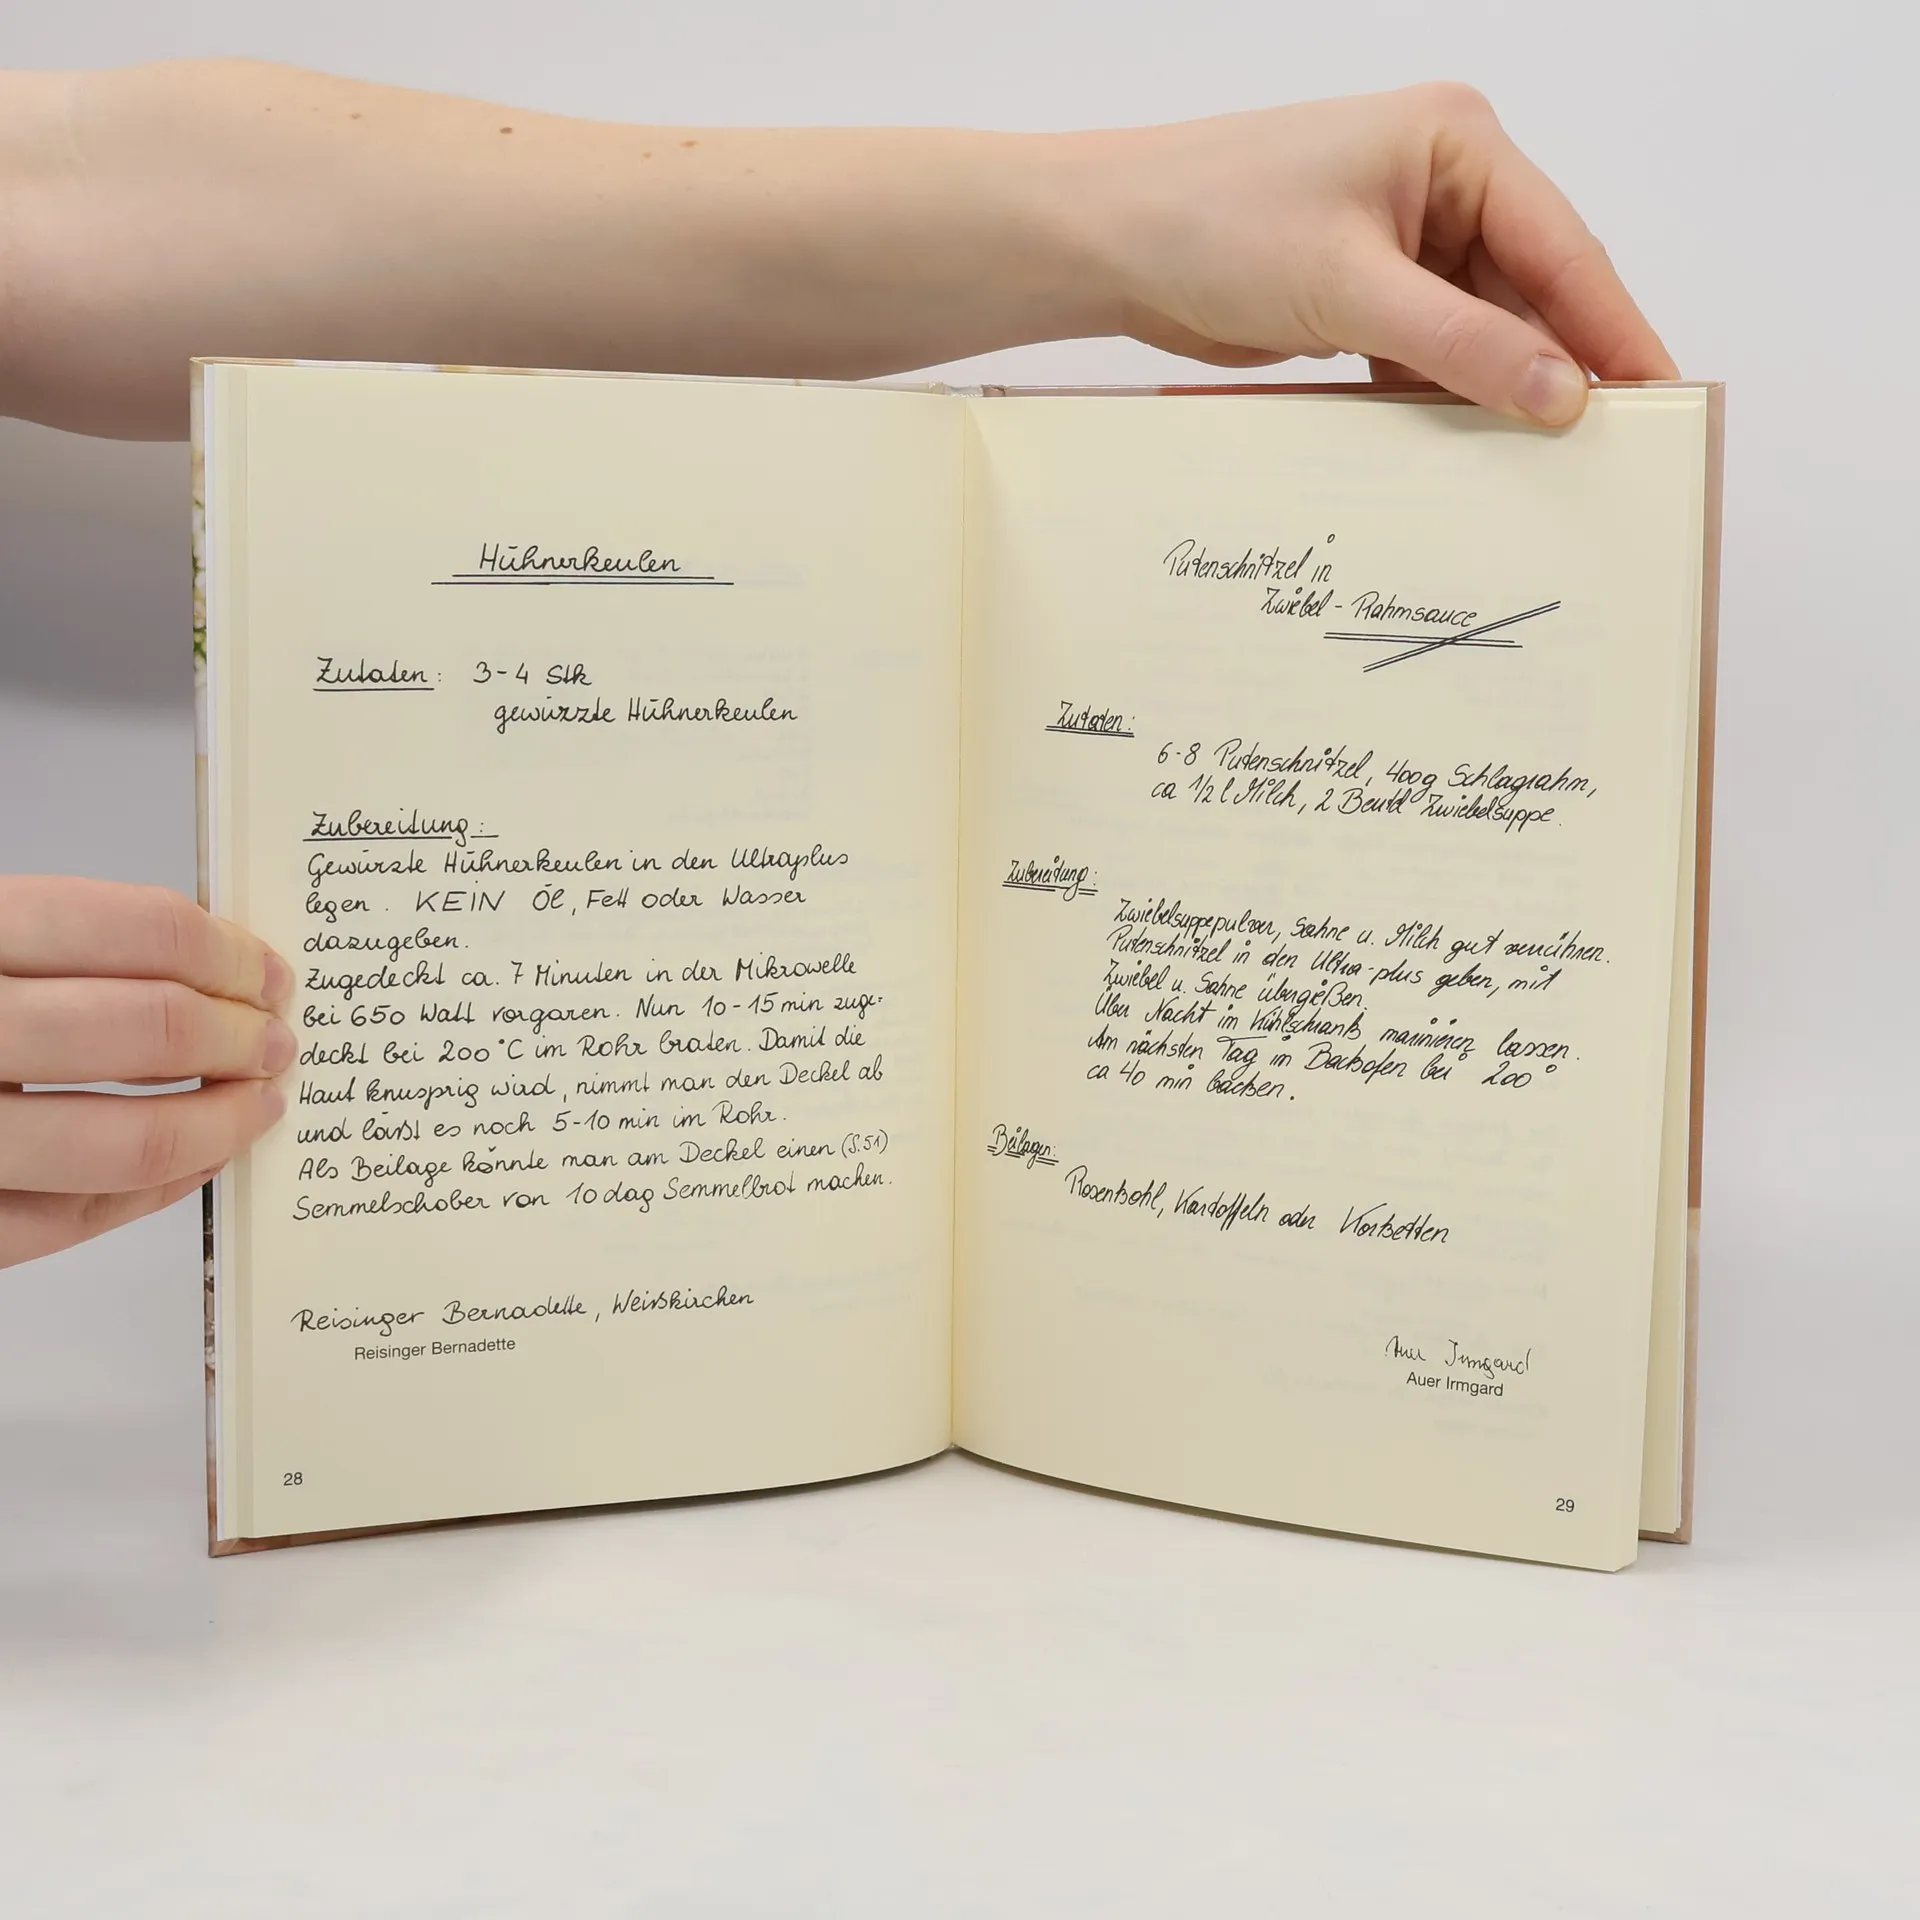 Hühnerkeulen
Zutaten: 3-4 Stk
gewürzte Hühnerkeulen
Zubereitung:
Gewürzte Hühnerkeulen in den Ultraplus
legen. KEIN Öl, Fett oder Wasser
dazugeben.
Zugedeckt ca. 7 Minuten in der Mikrowelle
bei 650 Watt vorgaren. Nun 10-15 min zuge-
deckt bei 200°C im Rohr braten. Damit die
Haut knusprig wird, nimmt man den Deckel ab
und läßt es noch 5-10 min im Rohr.
Als Beilage könnte man am Deckel einen (S.51)
Semmelschober von 10 dag Semmelbrot machen.
Reisinger Bernadette, Weißkirchen
Reisinger Bernadette
28
Putenschnitzel in
Zwiebel-Rahmsauce
Zutaten:
6-8 Putenschnitzel, 400g Schlagrahm,
ca 1/2 l Milch, 2 Beutel Zwiebelsuppe.
Zubereitung:
Zwiebelsuppepulver, Sahne u. Milch gut verrühren.
Putenschnitzel in den Ultra-plus geben, mit
Zwiebel u. Sahne übergießen.
Über Nacht im Kühlschrank marinieren lassen.
Am nächsten Tag im Backofen bei 200°
ca 40 min backen.
Beilagen:
Rosenkohl, Kartoffeln oder Kroketten
Auer Irmgard
Auer Irmgard
29